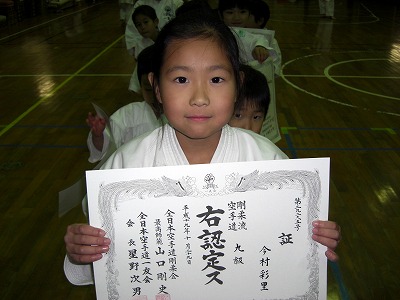 第一九六五号
証
今村彩里
剛柔流
空手道 九級
右認定ス
平成十九年十一月十九日
全日本空手道剛柔会
最高師範 山口剛史
全日本空手道一友会
会長 星野次男